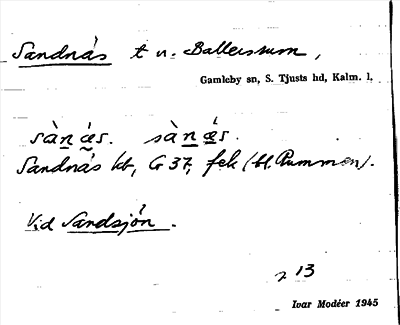 Sandnäs t u. Ballersum,
Gamleby sn, S. Tjusts hd, Kalm. l.
sànǽs. sànǽs.
Sandnäs kb, G 37, fek (bl. Rummen).
Vid Sandsjön.
13
Ivar Modéer 1945